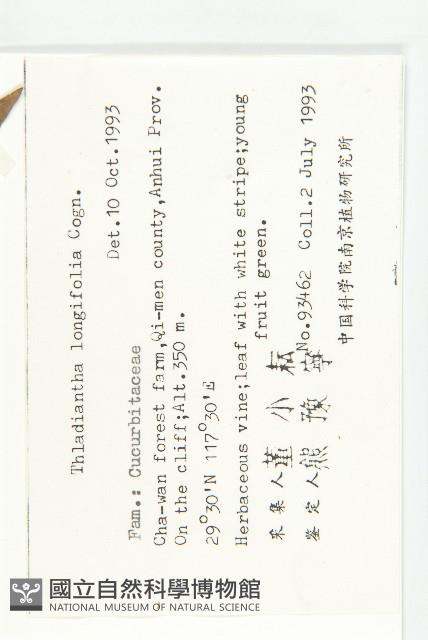 Thladiantha longifolia Cogn.
Det.10 Oct.1993
Fam.: Cucurbitaceae
Cha-wan forest farm,Qi-men county,Anhui Prov.
On the cliff;Alt.350 m.
29°30'N 117°30'E
Herbaceous vine;leaf with white stripe;young
fruit green.
采集人 董小耘
鉴定人 熊豫宁 No.93462 Coll.2 July 1993
中国科学院南京植物研究所
國立自然科學博物館
NATIONAL MUSEUM OF NATURAL SCIENCE